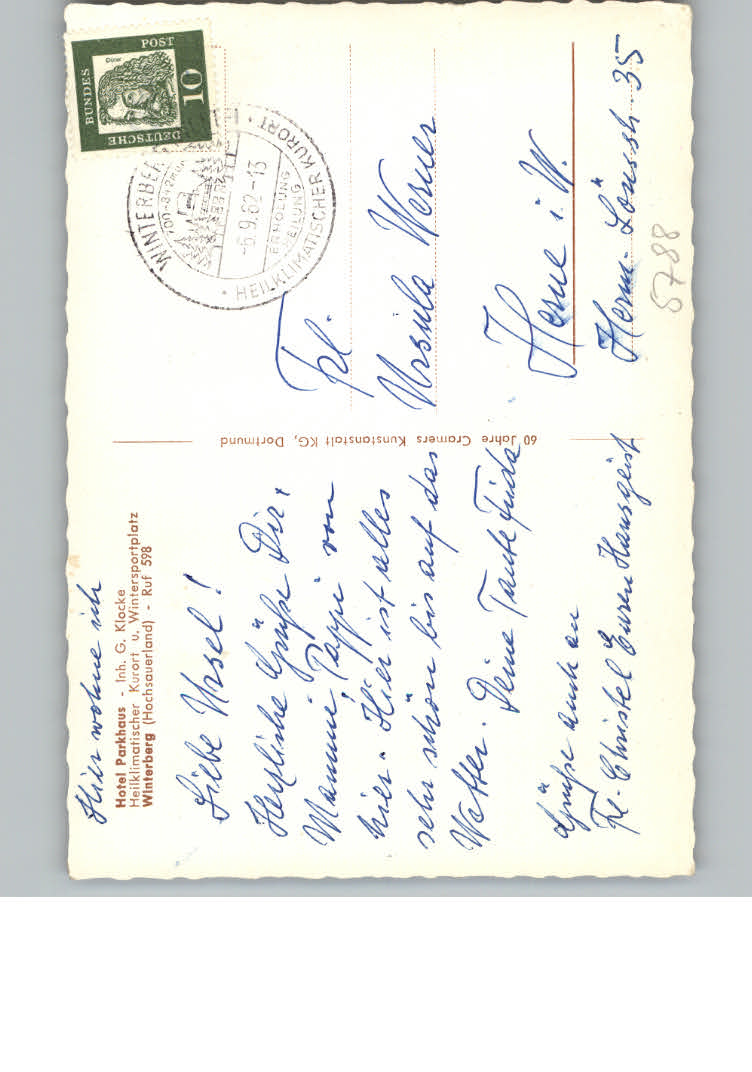 Hier wohne ich
Hotel Parkhaus - Inh. G. Klocke
Heilklimatischer Kurort u. Wintersportplatz
Winterberg (Hochsauerland) - Ruf 598
Liebe Ursel!
Herzliche Grüße Dir,
Mammi, Pappi von
hier. Hier ist alles
sehr schön bis auf das
Wetter. Deine Tante
Grüße auch an
Frl. Christel Euren Hausgeist
60 Jahre Cramers Kunstanstalt KG, Dortmund
DEUTSCHE
BUNDES
POST
10
Dürer
WINTERBERG
-6.9.62-13
ERHOLUNG
HEILUNG
HEILKLIMATISCHER KURORT
Frl.
Ursula Werner
Herne i. W.
Herm. Lönsstr. 35
5788